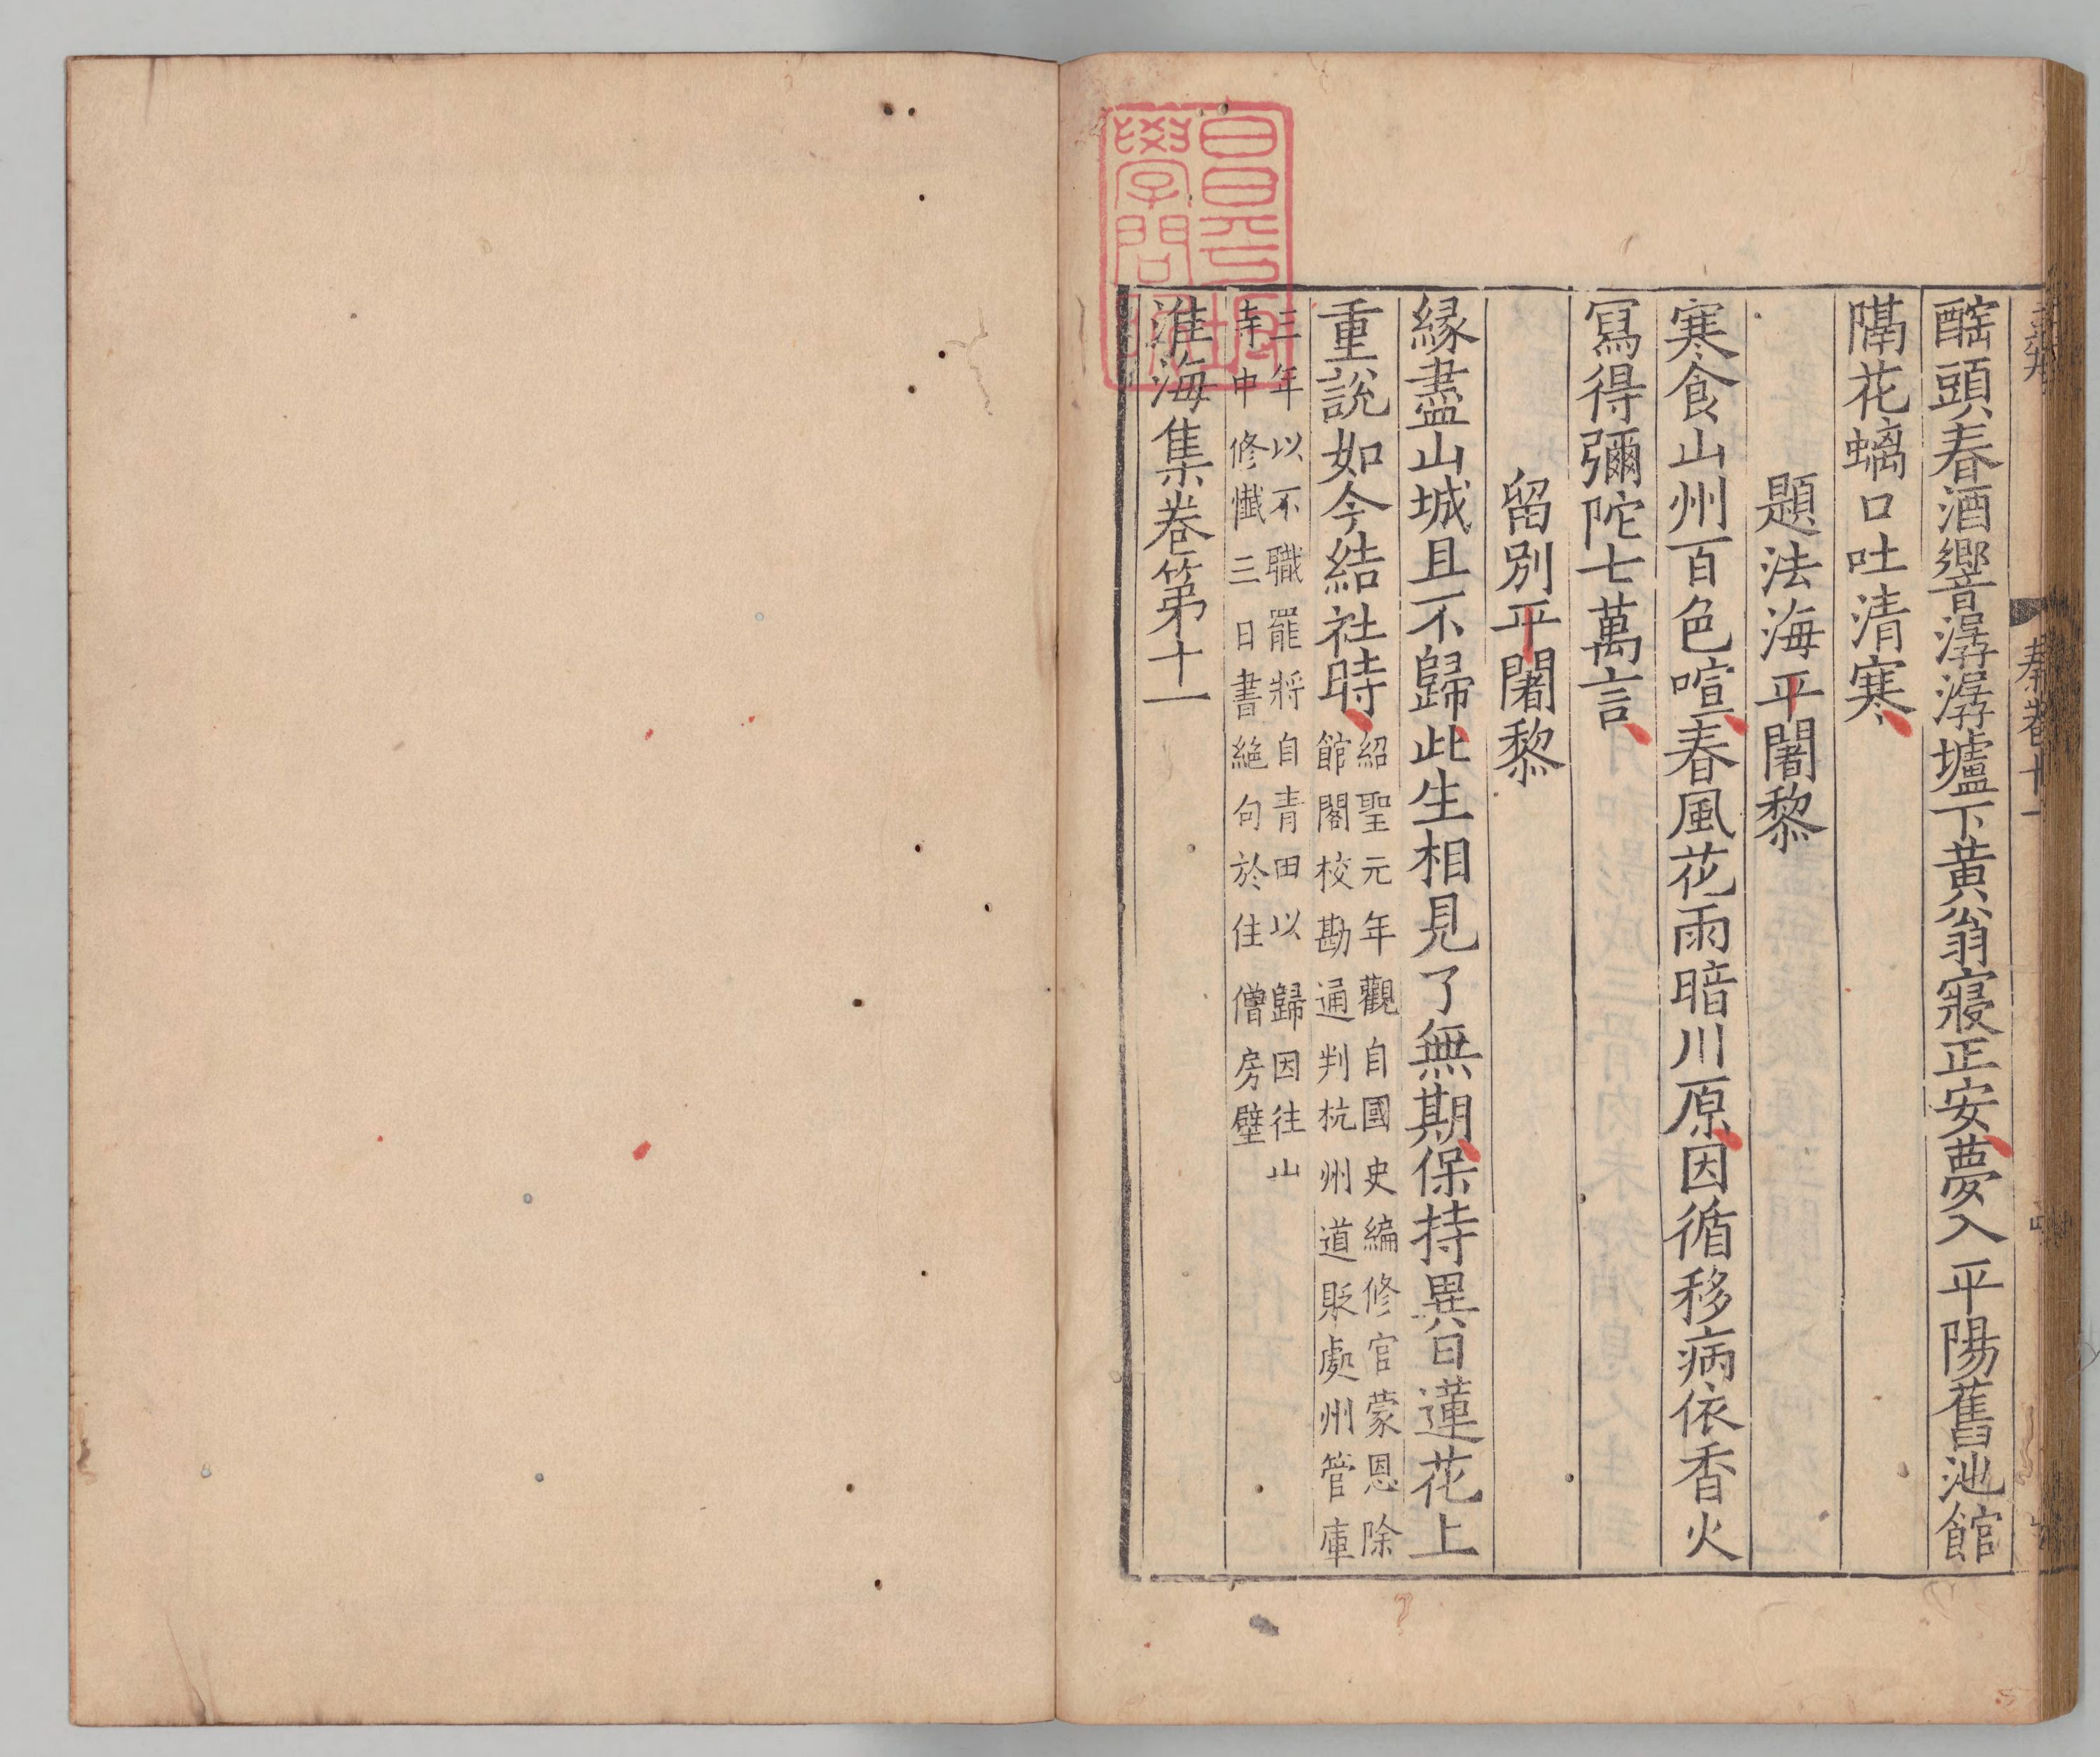 醡頭春酒響潺潺壚下黄翁寢正安夢入平陽舊池館
隔花螭口吐清寒
題法海平闍黎
寒食山州百色喧春風花雨暗川原因循移病依香火
冩得彌陀七萬言
留别平闍黎
緣盡山城且不歸此生相見了無期保持異日蓮花上
重說如今結社時
紹聖元年觀自國史編修官蒙恩除
館閣校勘通判杭州道貶處州管庫
三年以不職罷將自青田以歸因往山
寺中修懺三日書絶句於住僧房壁
淮海集卷第十一
秦卷十一